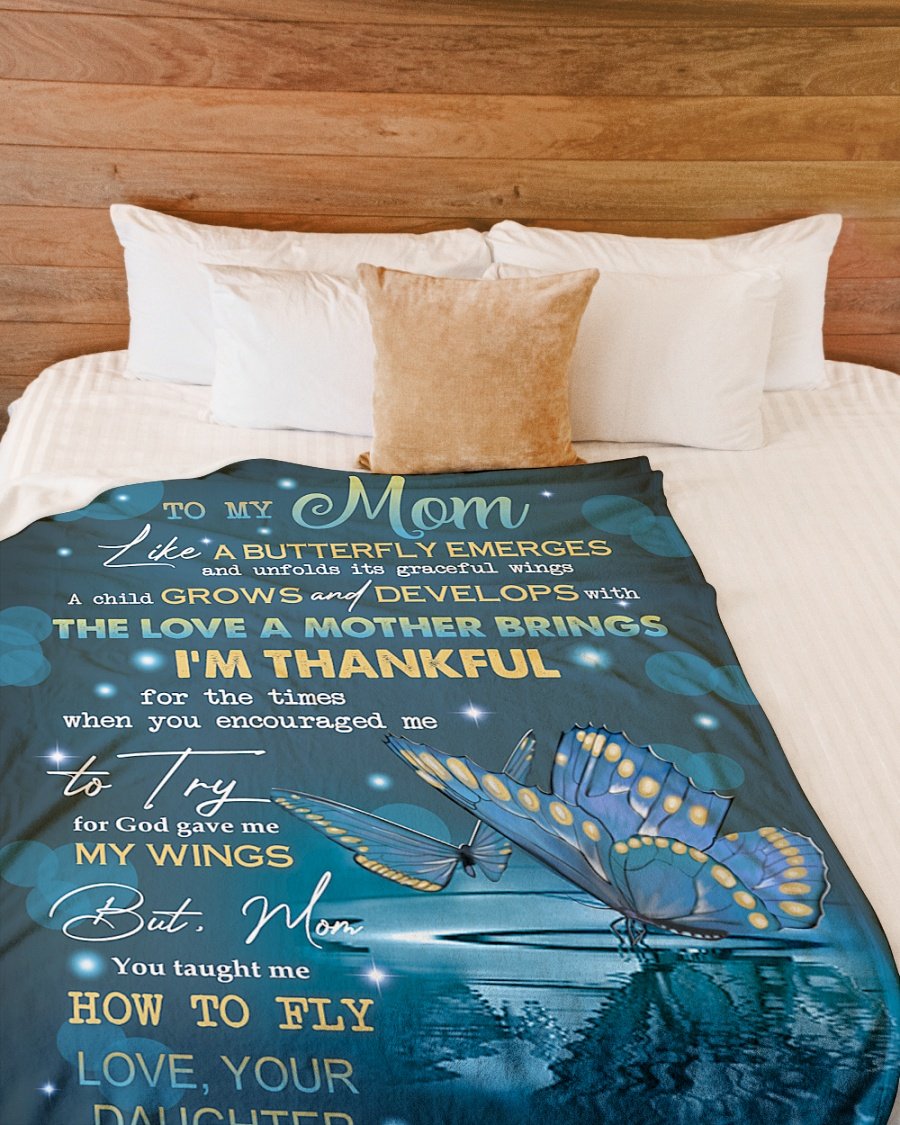 TO MY Mom
Like A BUTTERFLY EMERGES
and unfolds its graceful wings
A child GROWS and DEVELOPS with
THE LOVE A MOTHER BRINGS
I'M THANKFUL
for the times
when you encouraged me
to Try
for God gave me
MY WINGS
But, Mom
You taught me
HOW TO FLY
LOVE, YOUR
DAUGHTER